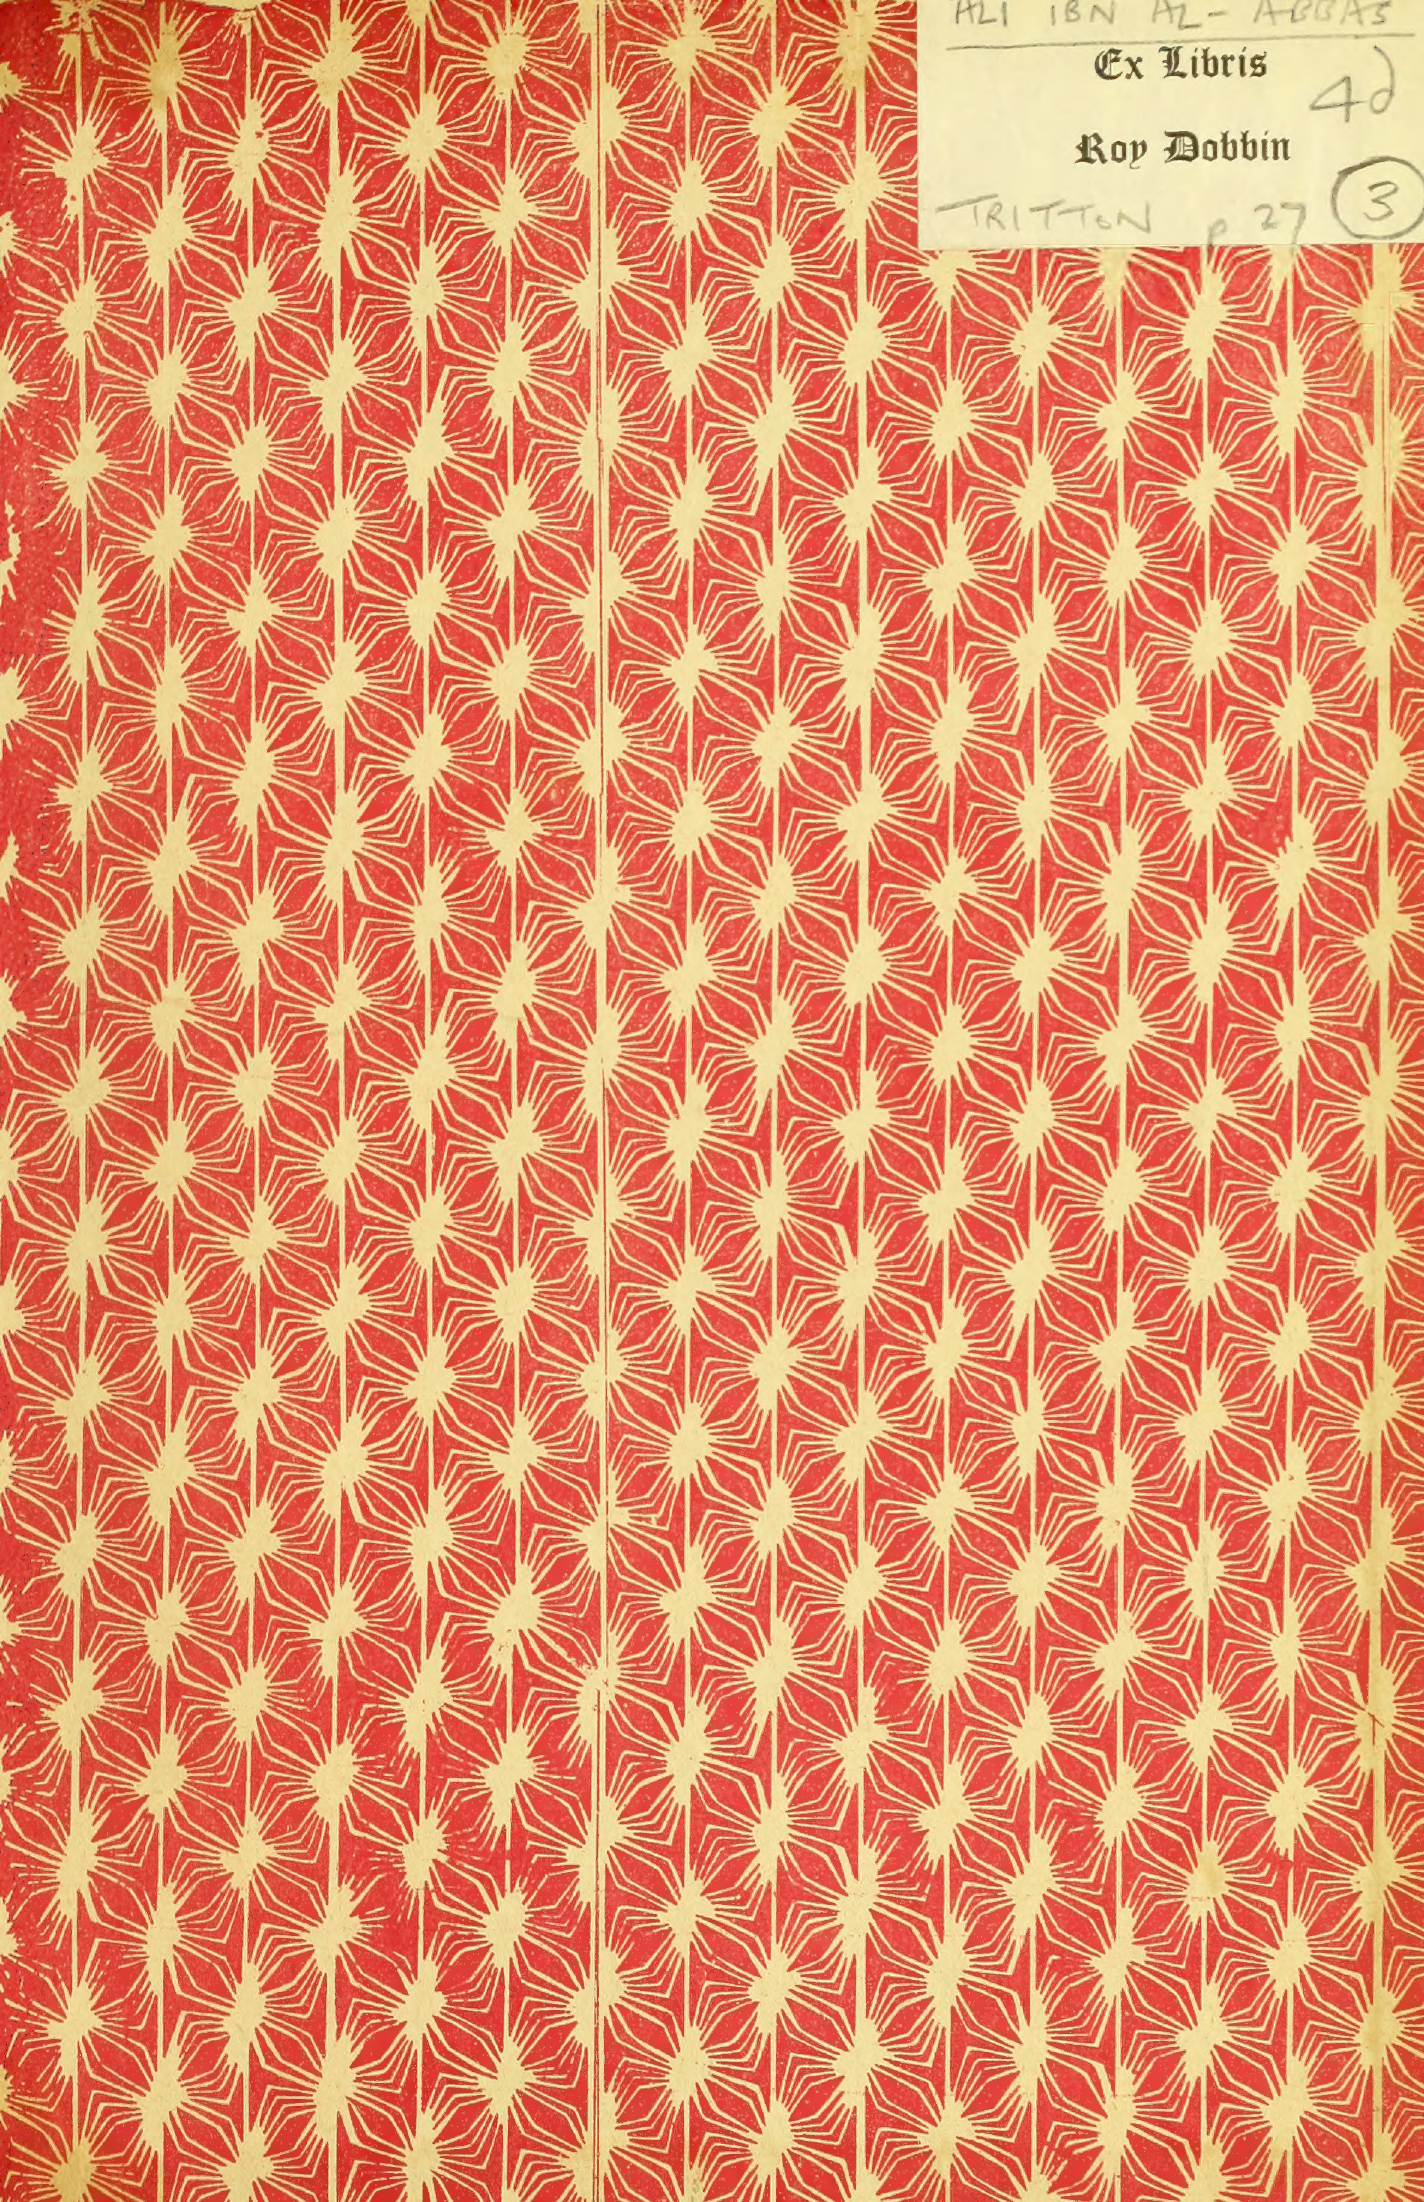 ALI IBN AL-ABBAS
Ex Libris
4d
Roy Dobbin
TRITTON p 27 3